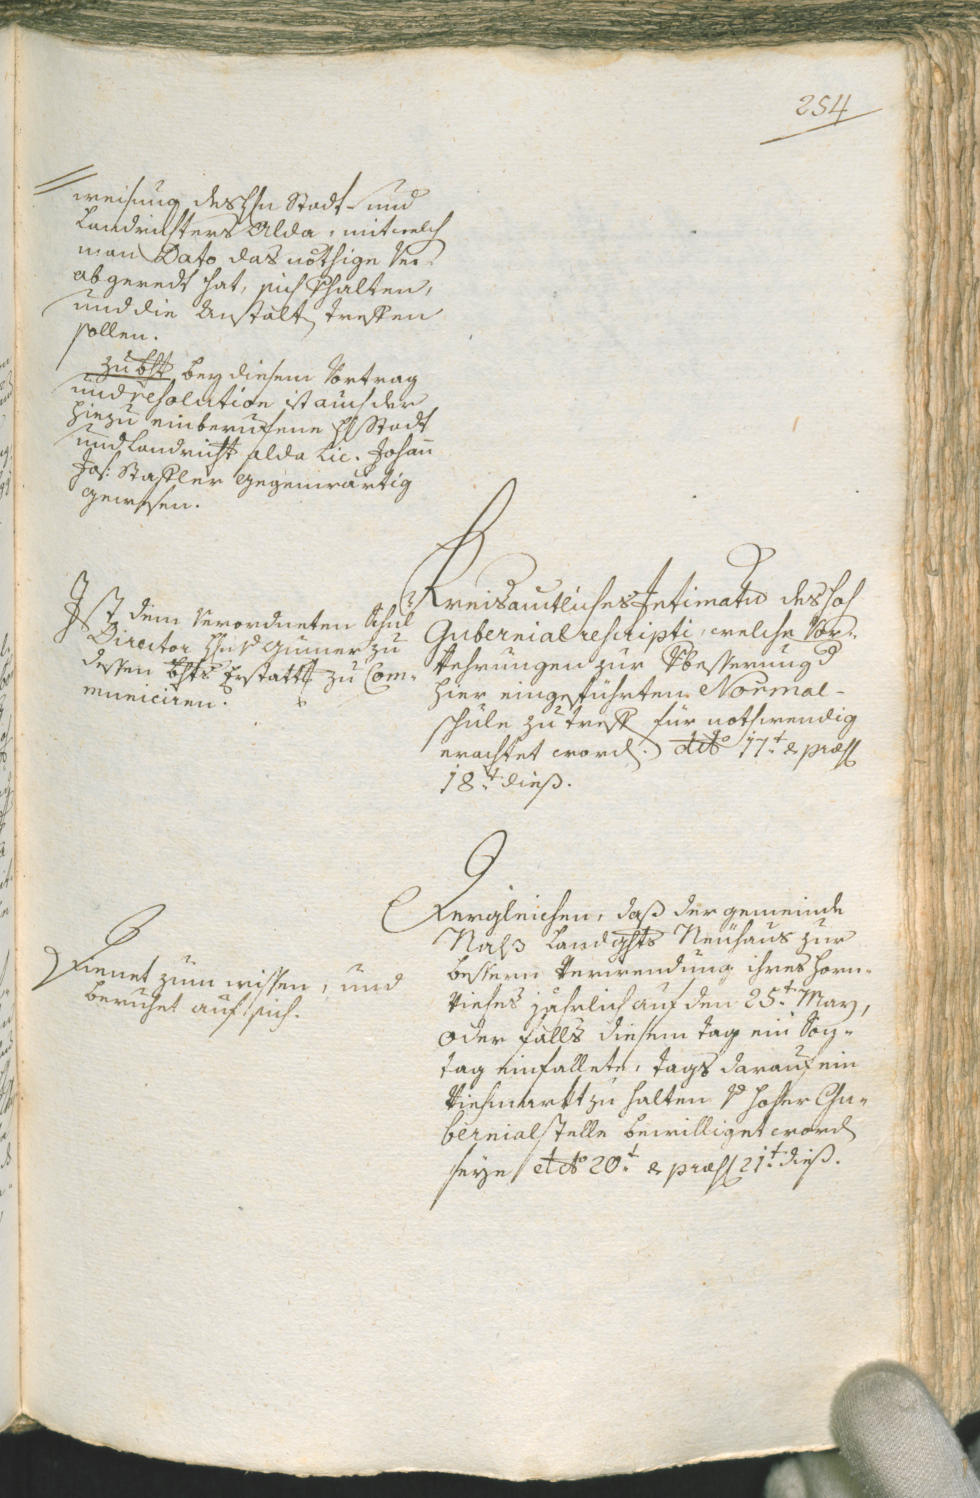 254
weisung des Hn Stadt- und
Landrichters Alda, mit welch
man Dato das nöthige Ver-
abgeredt hat, sich halten,
und die Anstalt treffen
sollen.
bey diesem Vortrag
und resolution ist auch der
hiezu einberufene H Stadt
und Landricht alda Lic. Johann
Jos: Stapler gegenwärtig
gewesen.
Kreisämtliches Intimatum des hoh
Gubernialrescripti, welche Vor-
kehrungen zur Vbesserung d
hier eingeführten Normal-
schule zu treff für nothwendig
erachtet word. ddto 17t & præs
18t dieß.
Ist dem Verordneten Schul
Director Hn v Gumer zu
dessen Erstatt zu Com-
municiren.
Dergleichen, daß der gemeinde
Nals Landghts Neuhaus zur
bessern Verwendung ihres Horn-
viehes jährlich auf den 25t May,
oder falls diesem tag ein Son-
tag einfallete, tags darauf ein
Viehmarkt zu halten v hoher Gu-
bernialstelle bewilliget word
seye ddto 20t & præs 21t dieß.
Dienet zum wissen, und
beruhet auf sich.